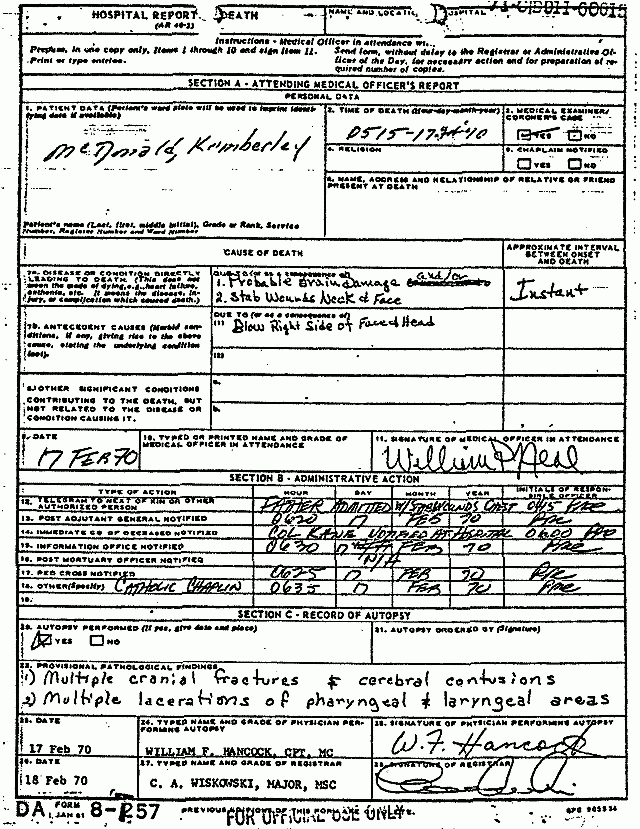 71-CID011-00615
HOSPITAL REPORT DEATH
(AR 40-2)
NAME AND LOCATION HOSPITAL
Instructions - Medical Officer in attendance
Prepare, in one copy only, Items 1 through 10 and sign Item 11.
Print or type entries.
Send form, without delay to the Registrar or Administrative Officer of the Day, for necessary action and for preparation of required number of copies.
SECTION A - ATTENDING MEDICAL OFFICER'S REPORT
PERSONAL DATA
1. PATIENT DATA (Patient's ward plate will be used to imprint identifying data if available)
McDonald, Kimberley
Patient's name (Last, first, middle initial), Grade or Rank, Service Number, Register Number and Ward Number
2. TIME OF DEATH (Hour-day-month-year)
0515-17
3. MEDICAL EXAMINER/ CORONER'S CASE
YES NO
4. RELIGION
5. CHAPLAIN NOTIFIED
YES NO
6. NAME, ADDRESS AND RELATIONSHIP OF RELATIVE OR FRIEND PRESENT AT DEATH
CAUSE OF DEATH
APPROXIMATE INTERVAL BETWEEN ONSET AND DEATH
7a. DISEASE OR CONDITION DIRECTLY LEADING TO DEATH (This does not mean the mode of dying, e.g., heart failure, asthenia, etc. It means the disease, injury, or complication which caused death.)
DUE TO (or as a consequence of)
1. Probable Brain Damage and/or
2. Stab Wounds Neck & Face
Instant
7b. ANTECEDENT CAUSES (Morbid conditions, if any, giving rise to the above cause, stating the underlying condition last).
DUE TO (or as a consequence of)
(1) Blow Right Side of Face & Head
(2)
8. OTHER SIGNIFICANT CONDITIONS CONTRIBUTING TO THE DEATH, BUT NOT RELATED TO THE DISEASE OR CONDITION CAUSING IT.
a.
b.
9. DATE
17 FEB 70
10. TYPED OR PRINTED NAME AND GRADE OF MEDICAL OFFICER IN ATTENDANCE
11. SIGNATURE OF MEDICAL OFFICER IN ATTENDANCE
William P Neal
SECTION B - ADMINISTRATIVE ACTION
TYPE OF ACTION HOUR DAY MONTH YEAR INITIALS OF RESPONSIBLE OFFICER
12. TELEGRAM TO NEXT OF KIN OR OTHER AUTHORIZED PERSON FATHER ADMITTED W/STAB WOUNDS CHEST
13. POST ADJUTANT GENERAL NOTIFIED 0620 17 FEB 70
14. IMMEDIATE CO OF DECEASED NOTIFIED COL KANE NOTIFIED AT HOSPITAL 0600
15. INFORMATION OFFICE NOTIFIED 0630 17 FEB 70
16. POST MORTUARY OFFICER NOTIFIED N/A
17. RED CROSS NOTIFIED 0625 17 FEB 70
18. OTHER (Specify) CATHOLIC CHAPLIN 0635 17 FEB 70
19.
SECTION C - RECORD OF AUTOPSY
20. AUTOPSY PERFORMED (If yes, give date and place)
YES NO
21. AUTOPSY ORDERED BY (Signature)
22. PROVISIONAL PATHOLOGICAL FINDINGS
1) Multiple cranial fractures & cerebral contusions
2) Multiple lacerations of pharyngeal & laryngeal areas
23. DATE
17 Feb 70
24. TYPED NAME AND GRADE OF PHYSICIAN PERFORMING AUTOPSY
WILLIAM F. HANCOCK, CPT, MC
25. SIGNATURE OF PHYSICIAN PERFORMING AUTOPSY
W. F. Hancock
26. DATE
18 Feb 70
27. TYPED NAME AND GRADE OF REGISTRAR
C. A. WISKOWSKI, MAJOR, MSC
28. SIGNATURE OF REGISTRAR
DA FORM 1 JAN 61 8-257
FOR OFFICIAL USE ONLY